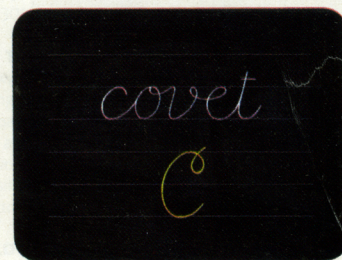 covet
C